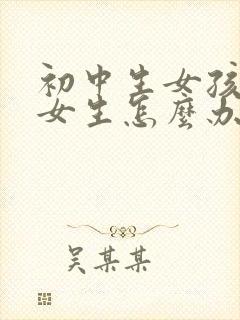 初中生女孩
女生怎麼办
吴某某